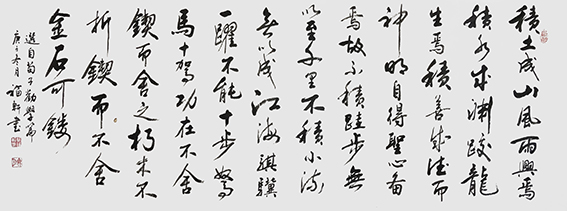 積土成山風雨興焉
積水成淵蛟龍
生焉積善成德而
神明自得聖心备
焉故不積跬步無
以至千里不積小流
無以成江海騏驥
一躍不能十步駑
馬十駕功在不舍
鍥而舍之朽木不
折鍥而不舍
金石可鏤
選自荀子勸學篇
庚子冬月 福軒書